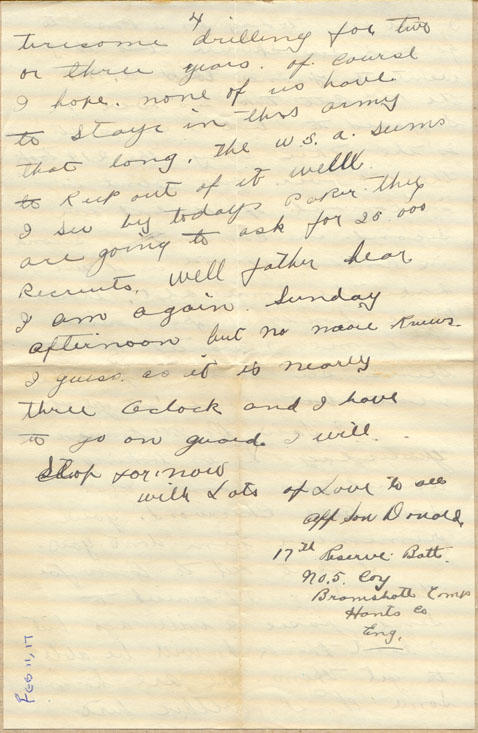 4
tiresome drilling for two
or three years. of course
I hope. none of us have
to stay in this army
that long. The U.S.A. seems
to keep out of it well
I see by todays paper they
are going to ask for 20 000
Recruits, well father hear
I am again. Sunday
afternoon but no more knews.
I guess. as it is nearly
three Oclock and I have
to go on guard I will
stop for now
with Lots of Love to all
aff son Donald
17th Reserve Batt.
No. 5. Coy
Bramshott Camp
Hants Co
Eng.
Feb 11, 17